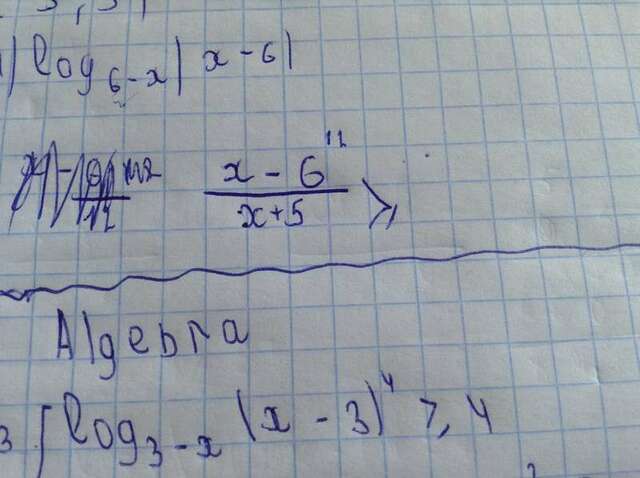 log₆₋ₓ |x-6|
x - 6¹² / x+5 ≥
Algebra
log₃₋ₓ (x - 3)⁴ ≥ 4